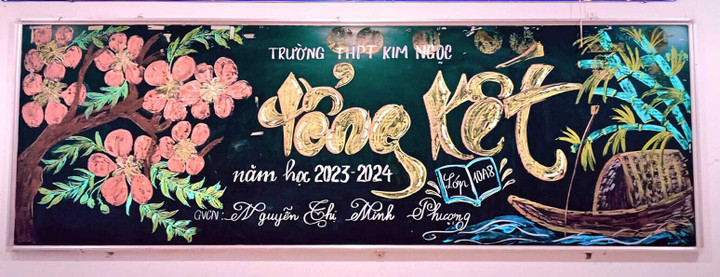 TRƯỜNG THPT KIM NGỌC
tổng kết
năm học 2023-2024
Lớp 10A8
GVCN: Nguyễn Thị Minh Phượng